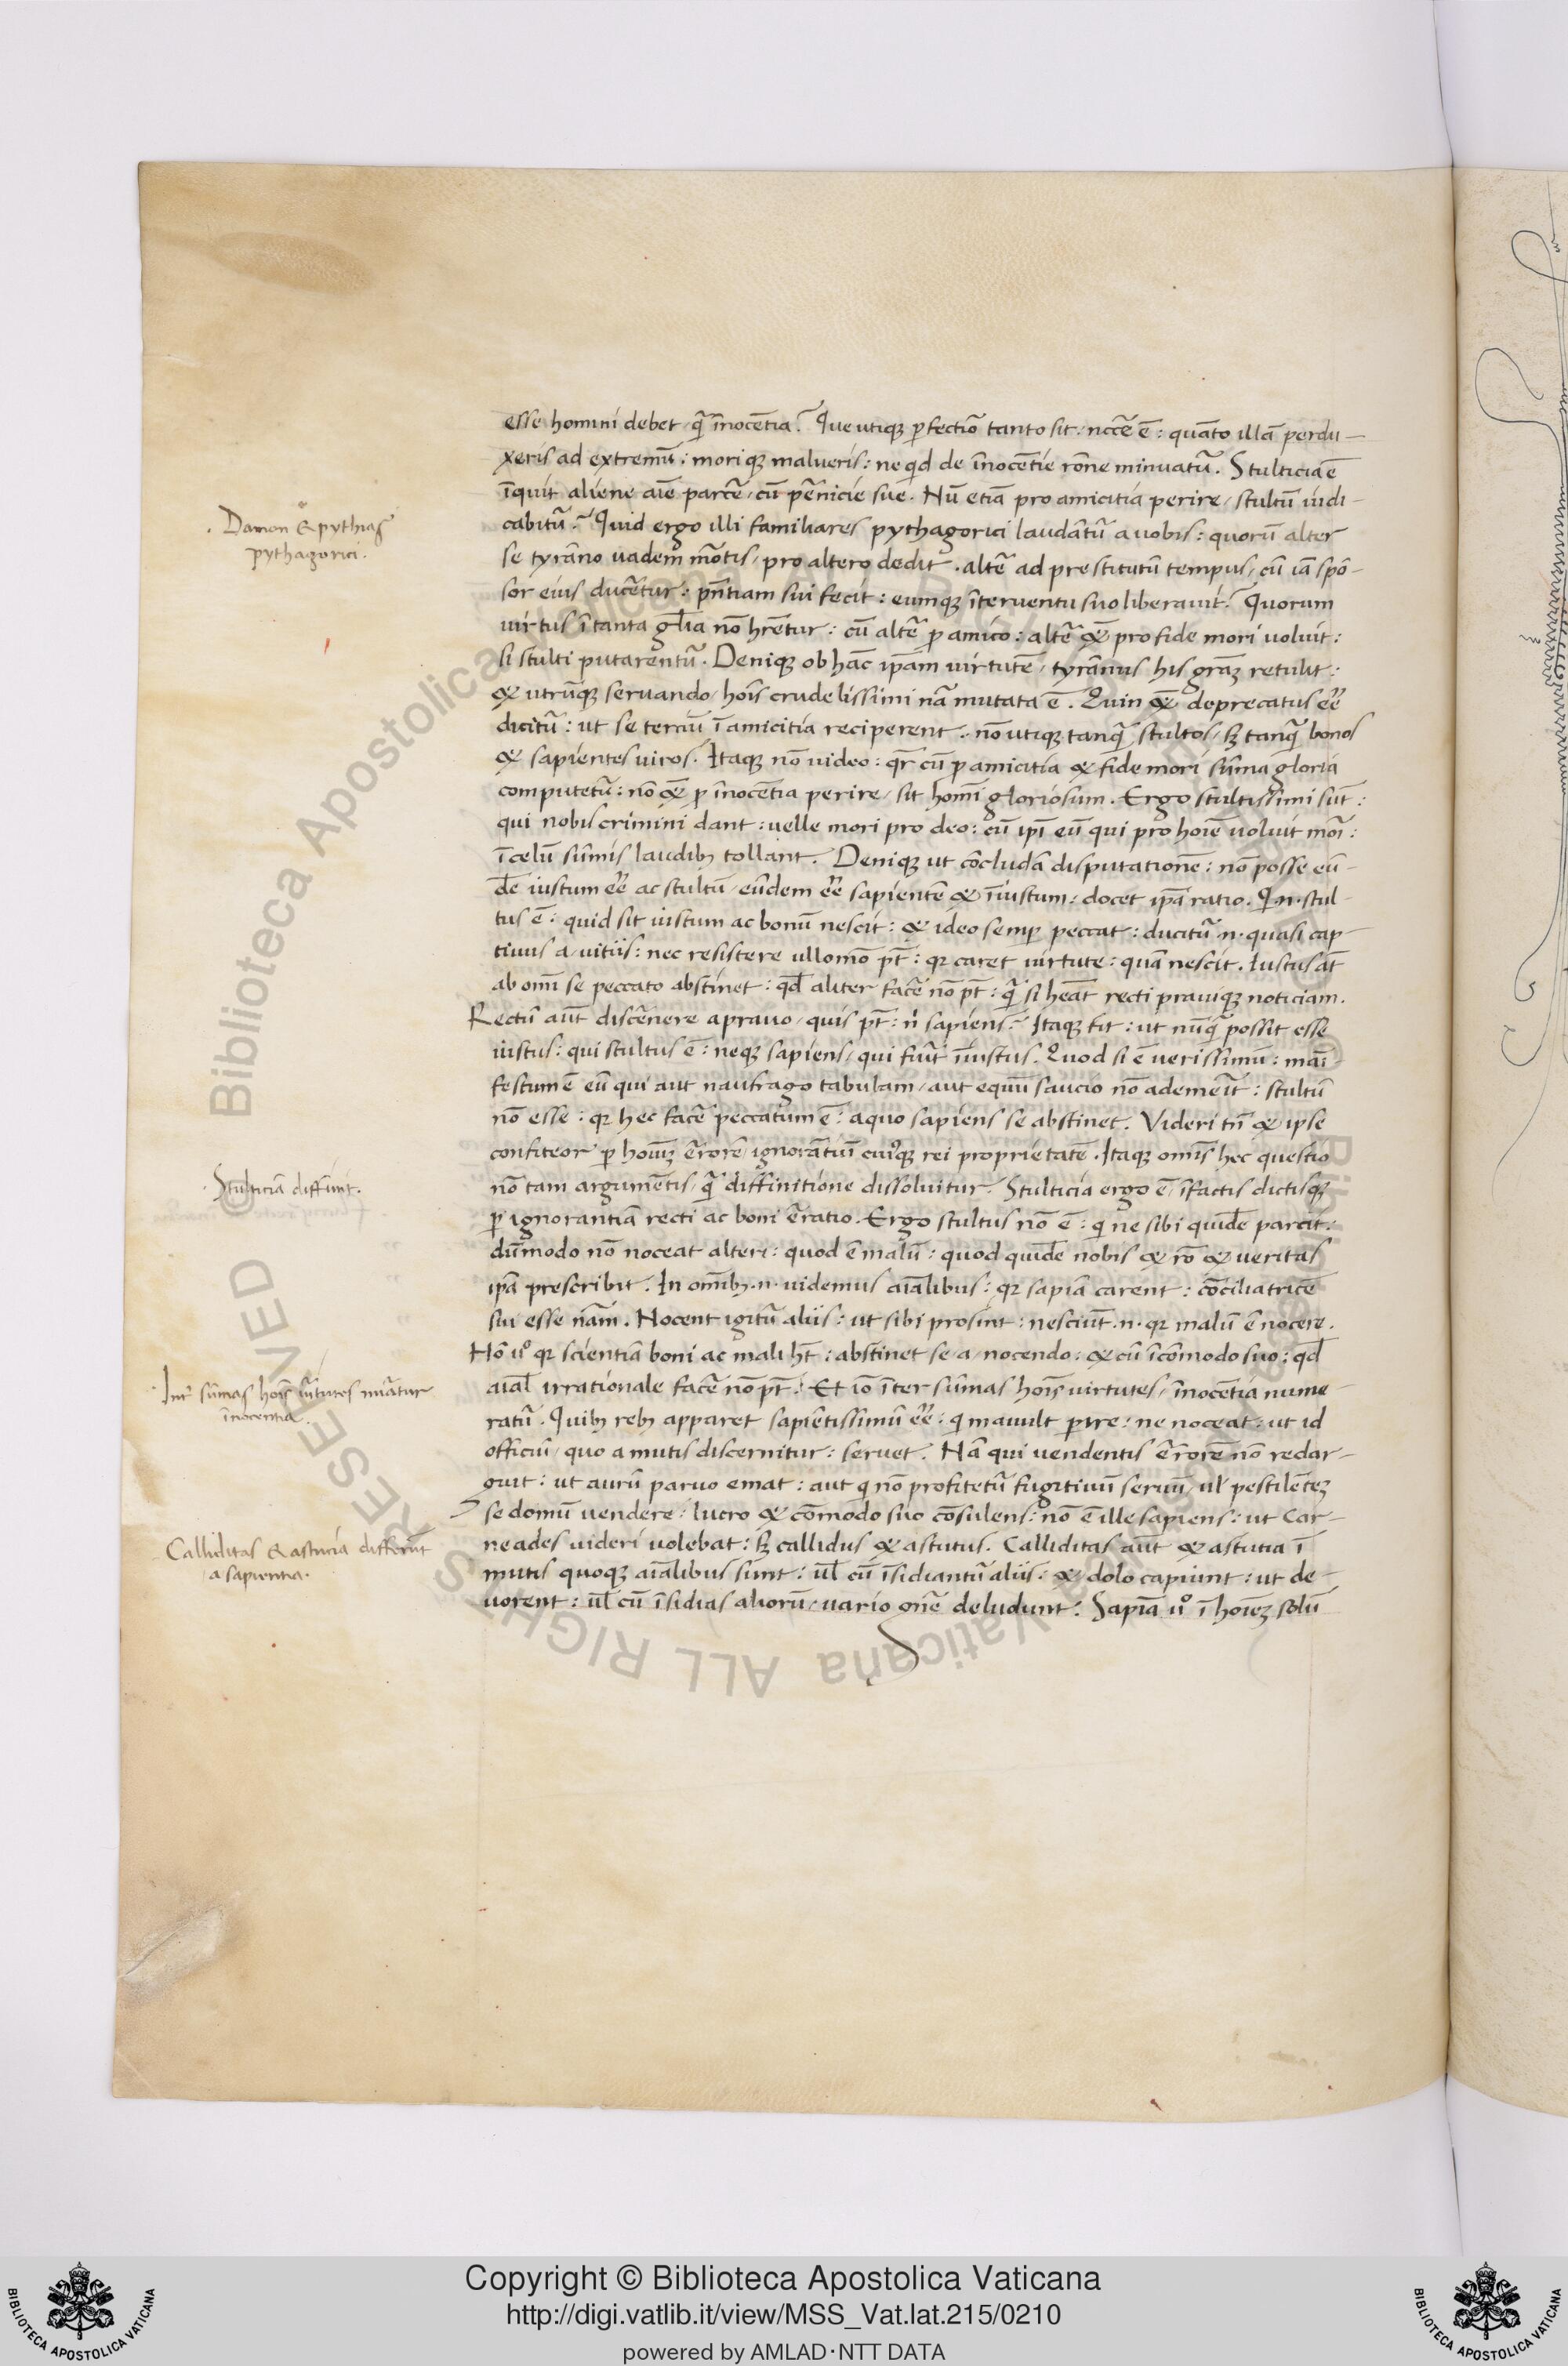 esse homini debet, q̃ īnocētia? Que utiqꝫ ꝑfectio tanto sit: nccē ē: quāto illā perdu-
xeris ad extremū: moriqꝫ malueris: ne qd de īnocētie rōne minuatũ. Stulticia ē
īquit aliene aīe parcẽ, cū pẽnicie sue. Nū etiā pro amicitia perire, stultū iudi-
cabitũ? Quid ergo illi familiares pythagorici laudātũ a uobis: quorū alter
se tyrāno uadem mõtis, pro altero dedit. altẽ ad prestitutū tempus, cū iā spō-
sor eius ducẽtur: pn̄tiam sui fecit: eumqꝫ īteruentu suo liberauit? Quorum
uirtus ī tanta gl̄ia nō hr̄etur: cū altẽ ꝑ amico: altẽ &̄ pro fide mori uoluit:
si stulti putarentũ. Deniqꝫ ob hāc ip̄am uirtutē, tyrānus his grāꝫ retulit:
& utrūqꝫ seruando, hoīs crudelissimi nā mutata ē. Quin &̄ deprecatus eē
dicitũ: ut se terciū ī amicitia reciperent. nō utiqꝫ tanq̃ stultos, sꝫ tanq̃ bonos
& sapientes uiros. Itaqꝫ nō uideo: qr̄ cū ꝑ amicitia & fide mori sūma gloria
computetũ: nō &̄ ꝑ īnocētia perire, sit homī gloriosum. Ergo stultissimi sūt:
qui nobis crimini dant: uelle mori pro deo: cū ip̄i eū qui pro hoīe uoluit mõi:
ī celū sūmis laudibꝫ tollant. Deniqꝫ ut cōcludā disputationē: nō posse eū-
dē iustum eē ac stultū, eūdem eē sapientē & īiustum: docet ip̄a ratio. Q̇ .n. stul-
tus ē: quid sit iustum ac bonū nescit: & ideo semꝑ peccat: ducitũ .n. quasi cap-
tiuus a, uitiis: nec resistere ullomō pt̄: qꝛ caret uirtute: quā nescit. Iustus āt
ab omī se peccato abstinet: qd̄ aliter facẽ nō pt̄: q̃ si hēat recti prauiqꝫ noticiam.
Rectū aūt discẽnere a prauo, quis pt̄: ni sapiens? Itaqꝫ fit: ut nūq̃ possit esse
iustus: qui stultus ē: neqꝫ sapiens, qui fuĩt īiustus. Quod si ē uerissimū: maī
festum ē eū qui aut naufrago tabulam, aut equū saucio nō ademẽit: stultū
nō esse: qꝛ hec facẽ peccatum ē: a quo sapiens se abstinet. Videri tn̄ & ipse
confiteor ꝑ hoīuꝫ ẽrorē ignorātiū cuiꝰqꝫ rei proprietatē. Itaqꝫ omīs hec questio
nō tam argumētis, q̃ diffinitione dissoluitur. Stulticia ergo ē, ī factis dictisqꝫ
ꝑ ignorantiā recti ac boni ẽratio. Ergo stultus nō ē: qi ne sibi quidē parcit:
dūmodo nō noceat alteri: quod ē malū: quod quidē nobis & rō & ueritas
ip̄a prescribit. In omībꝫ .n. uidemus aīalibus: qꝛ sapīa carent: cōciliatricē
sui esse nām. Nocent igitũ aliis: ut sibi prosint: nesciūt .n. qꝛ malū ē nocere.
Hō uo qꝛ scientiā boni ac mali ht̄: abstinet se, a, nocendo: & cū īcōmodo suo: qd̄
aīal irrationale facẽ nō pt̄. Et iō īter sūmas hoīs uirtutes, īnocētia nume-
ratũ. Quibꝫ rebꝫ apparet sapiētissimū eē: qi mauult ꝑire: ne noceat: ut id
officiū, quo a mutis discernitur: seruet. Nā qui uendentis ẽrorē nō redar-
guit: ut aurū paruo emat: aut qi nō profitetũ fugitiuū seruū, ul̄ pestilēteꝫ
se domū uendere: lucro & cōmodo suo cōsulens: nō ē ille sapiens: ut Car-
neades uideri uolebat: sꝫ callidus & astutus. Calliditas aūt & astutia ī
mutis quoqꝫ aīalibus sunt: ul̄ cū īsidiantũ aliis: & dolo capiunt: ut de-
uorent: ul̄ cū īsidias aliorū, uario gn̄e deludunt. Sapīa uo ī hoīeꝫ solū
Damon & pythias
pythagorici.
Stulticiā diffinit.
Int̃ sūmas hoīs uĩtutes nuātur
īnocentia.
Calliditas & astucia differūt
a sapientia.
Copyright © Biblioteca Apostolica Vaticana
http://digi.vatlib.it/view/MSS_Vat.lat.215/0210
powered by AMLAD·NTT DATA
BIBLIOTECA APOSTOLICA VATICANA
BIBLIOTECA APOSTOLICA VATICANA
© Biblioteca Apostolica Vaticana ALL RIGHTS RESERVED